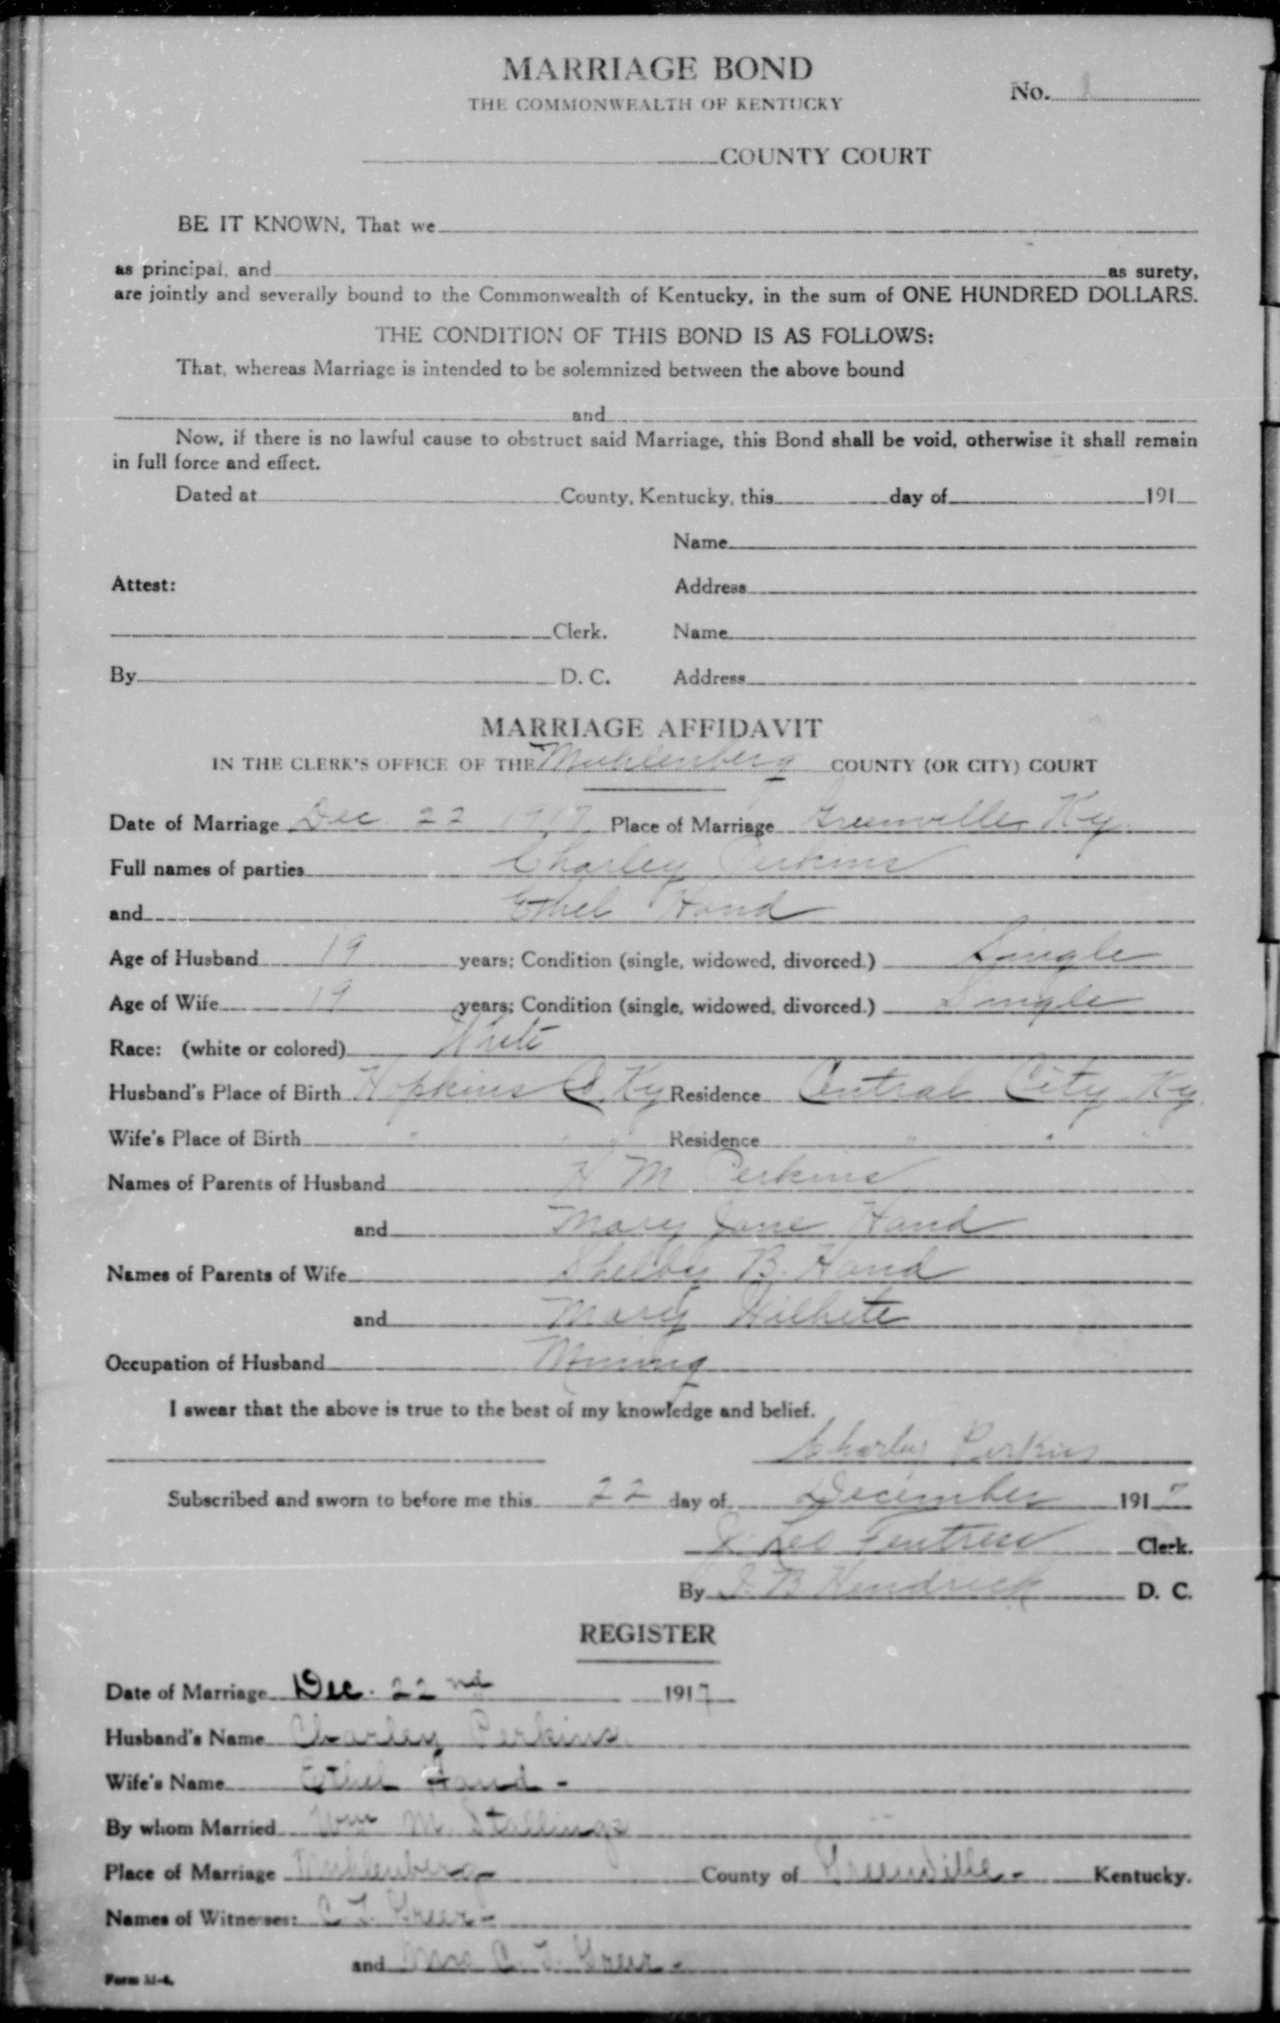 MARRIAGE BOND
THE COMMONWEALTH OF KENTUCKY
No.
COUNTY COURT
BE IT KNOWN, That we
as principal, and as surety,
are jointly and severally bound to the Commonwealth of Kentucky, in the sum of ONE HUNDRED DOLLARS.
THE CONDITION OF THIS BOND IS AS FOLLOWS:
That, whereas Marriage is intended to be solemnized between the above bound
and
Now, if there is no lawful cause to obstruct said Marriage, this Bond shall be void, otherwise it shall remain
in full force and effect.
Dated at County, Kentucky, this day of 191
Name
Attest: Address
Clerk. Name
By D. C. Address
MARRIAGE AFFIDAVIT
IN THE CLERK'S OFFICE OF THE Muhlenberg COUNTY (OR CITY) COURT
Date of Marriage Dec 22 1917 Place of Marriage Greenville Ky
Full names of parties Charley Perkins
and Ethel Hand
Age of Husband 19 years; Condition (single, widowed, divorced.) Single
Age of Wife 19 years; Condition (single, widowed, divorced.) Single
Race: (white or colored) White
Husband's Place of Birth Hopkins Co Ky Residence Central City Ky
Wife's Place of Birth " " Residence " " "
Names of Parents of Husband H M Perkins
and Mary Jane Hand
Names of Parents of Wife Shelby B. Hand
and Mary Wilhite
Occupation of Husband Mining
I swear that the above is true to the best of my knowledge and belief.
Charley Perkins
Subscribed and sworn to before me this 22 day of December 1917
J. Leo Fentress Clerk.
By J. B. Hendrick D. C.
REGISTER
Date of Marriage Dec. 22nd 1917
Husband's Name Charley Perkins
Wife's Name Ethel Hand -
By whom Married Wm M. Stallings
Place of Marriage Muhlenberg County of Greenville - Kentucky.
Names of Witnesses: C. T. Greer -
and Mrs C. T. Greer -
Form M-4.